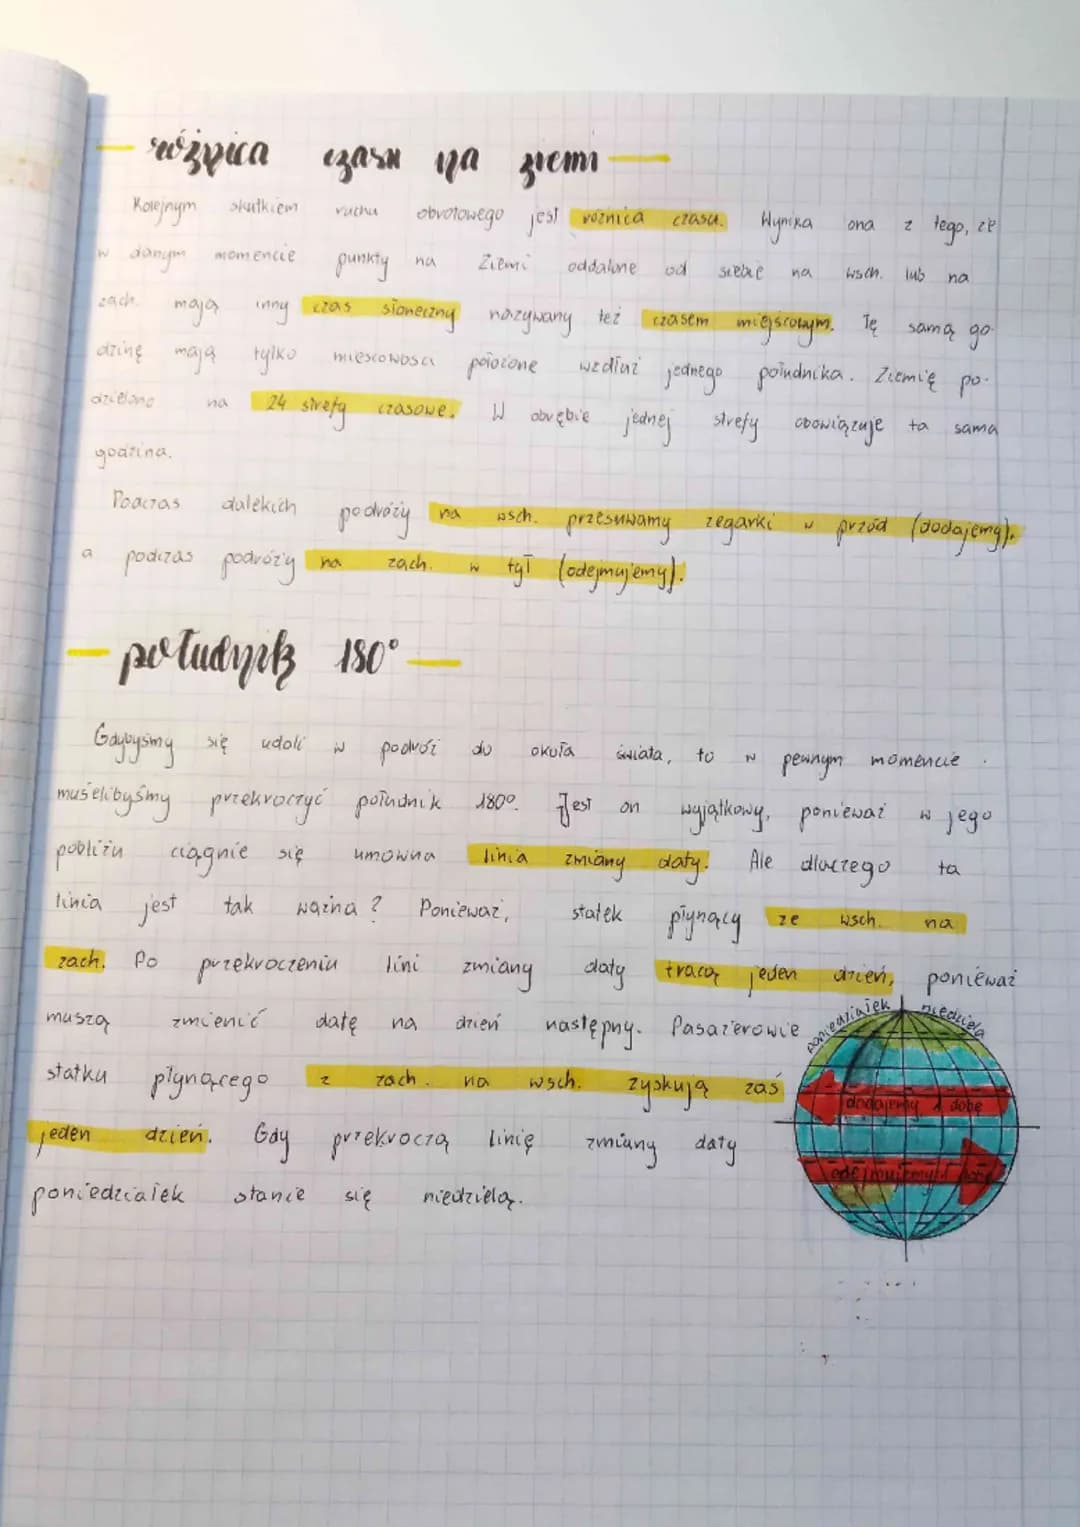 różnica czasu na ziemi
Kolejnym skutkiem ruchu obrotowego jest różnica czasu. Wynika ona z tego, że
w danym momencie punkty na Ziemi oddalone od siebie na wsch. lub na
zach. mają inny czas słoneczny nazywany też czasem miejscowym. Tę samą go-
dzinę mają tylko miescowości położone wzdłuż jednego południka. Ziemię po-
dzielono na 24 strefy czasowe. W obrębie jednej strefy obowiązuje ta sama
godzina.
Podczas dalekich podróży na wsch. przesuwamy zegarki w przód (dodajemy),
a podczas podróży na zach. w tył (odejmujemy).
południk 180°
Gdybyśmy się udali w podróż do okoła świata, to w pewnym momencie
musielibyśmy przekroczyć południk 180°. Jest on wyjątkowy, ponieważ w jego
pobliżu ciągnie się umowna linia zmiany daty. Ale dlaczego ta
linia jest tak ważna? Ponieważ, statek płynący ze wsch. na
zach. Po przekroczeniu lini zmiany daty tracą jeden dzień, ponieważ
muszą zmienić datę na dzień następny. Pasażerowie
statku płynącego z zach. na wsch. zyskują zaś
jeden dzień. Gdy przekroczą linię zmiany daty
poniedziałek stanie się niedzielą.
poniedziałek niedziela
dodajemy 1 dobę
odejmujemy 1 dobę